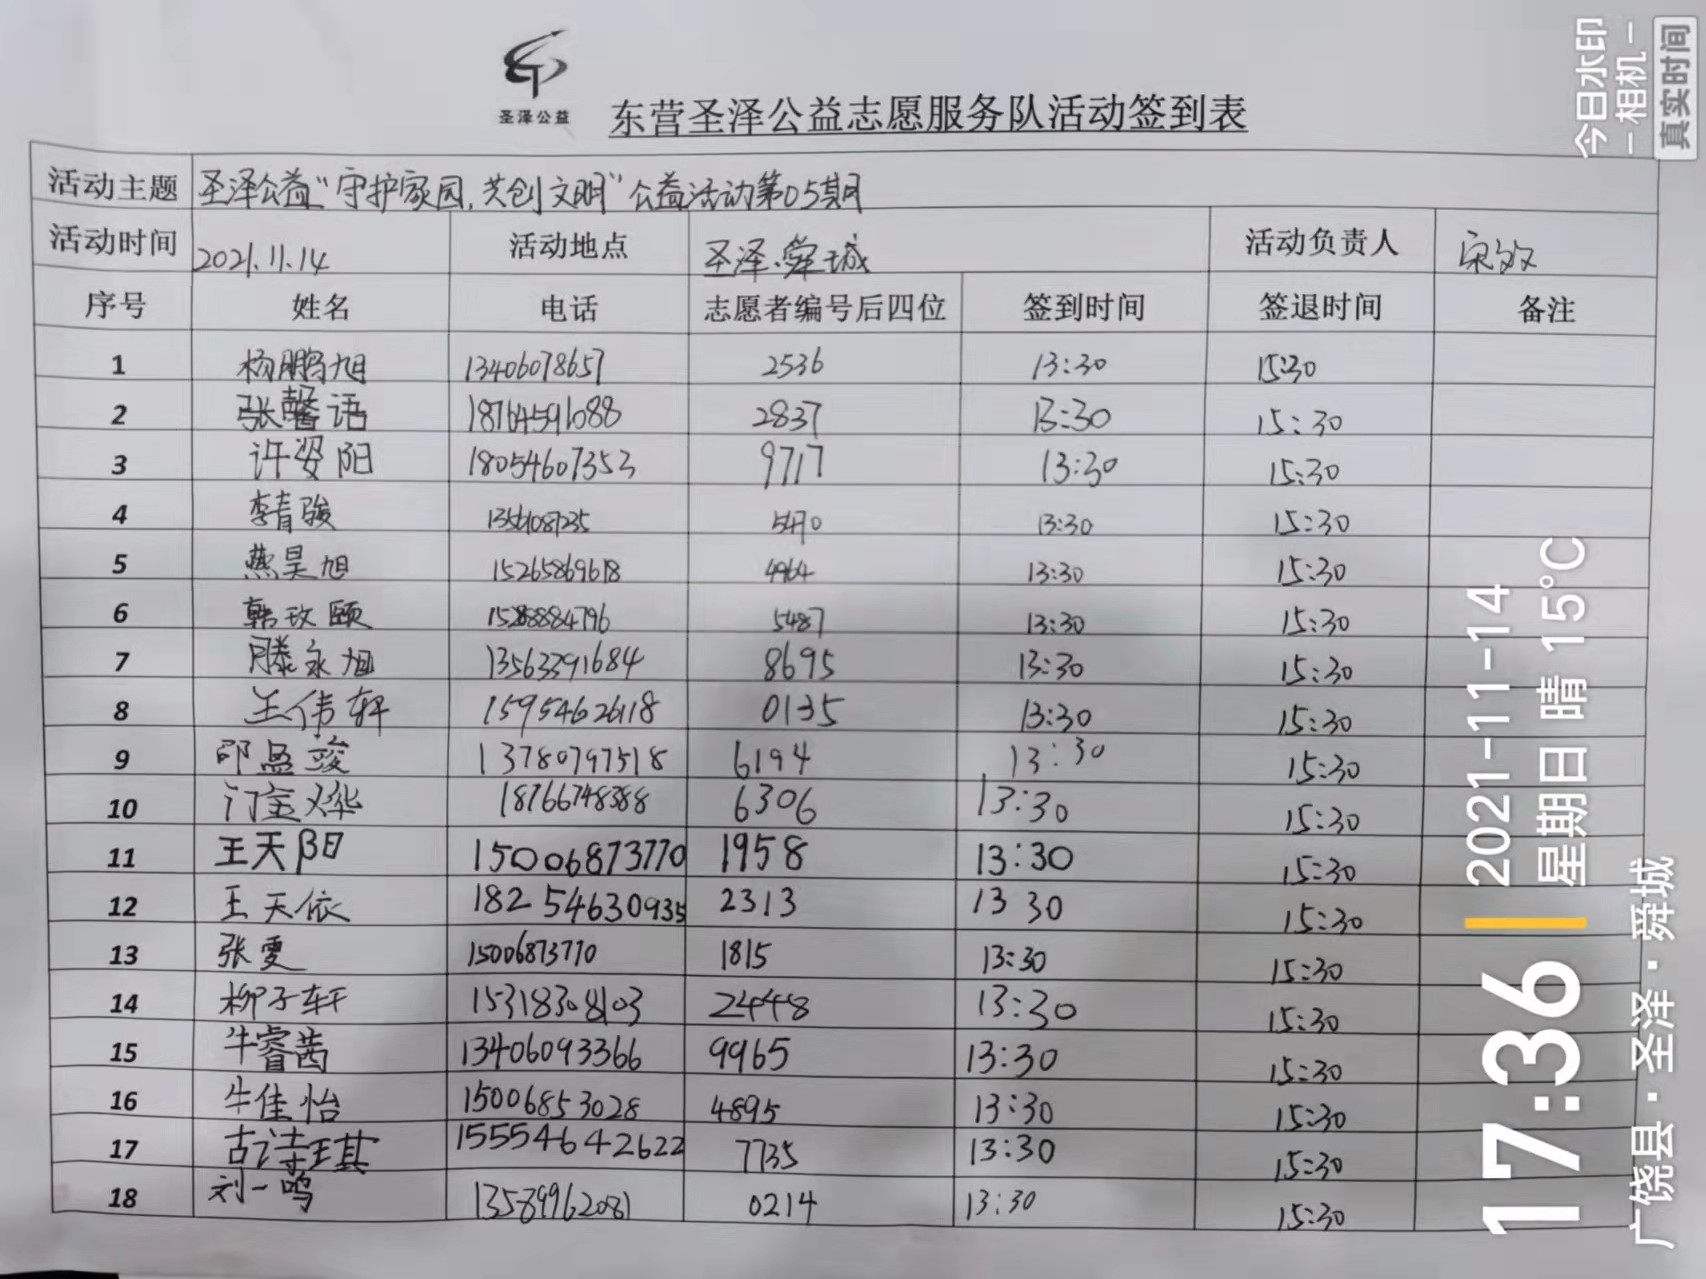 圣泽公益
东营圣泽公益志愿服务队活动签到表
活动主题 圣泽公益"守护家园,共创文明"公益活动第05期
活动时间 2021.11.14 活动地点 圣泽·舜城 活动负责人
序号 姓名 电话 志愿者编号后四位 签到时间 签退时间 备注
1 杨鹏旭 13406078657 2536 13:30 15:30
2 张馨语 18764591088 2837 13:30 15:30
3 许姿阳 18054607353 9717 13:30 15:30
4 李青骏 13:30 15:30
5 燕昊旭 15265869618 4964 13:30 15:30
6 韩玫颐 5487 13:30 15:30
7 滕永旭 13563391684 8695 13:30 15:30
8 王伟轩 15954626118 0135 13:30 15:30
9 邵孟竣 13780797518 6194 13:30 15:30
10 18766748388 6306 13:30 15:30
11 王天阳 15006873770 1958 13:30 15:30
12 王天依 182 54630935 2313 13 30 15:30
13 张雯 15006873770 1815 13:30 15:30
14 柳子轩 15318308103 2448 13:30 15:30
15 牛睿茜 13406093366 9965 13:30 15:30
16 牛佳怡 15006853028 4895 13:30 15:30
17 古诗琪 155554642622 7735 13:30 15:30
18 刘一鸣 13589962081 0214 13:30 15:30
今日水印
-相机-
真实时间
17:36
2021-11-14
星期日 晴 15°C
广饶县·圣泽·舜城